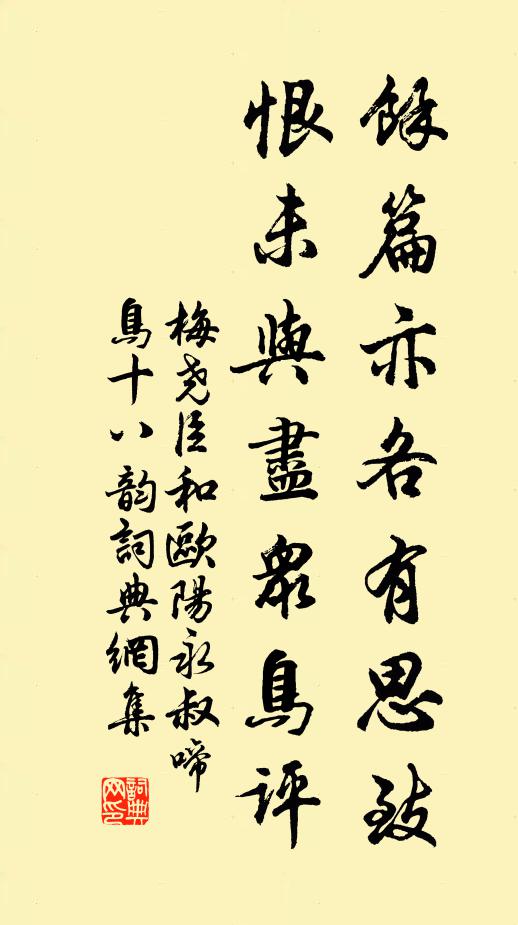 餘篇亦各有思致
恨未與盡眾鳥評
梅尧臣和歐陽永叔啼
鳥十八韵詞典網集
詞典
网印